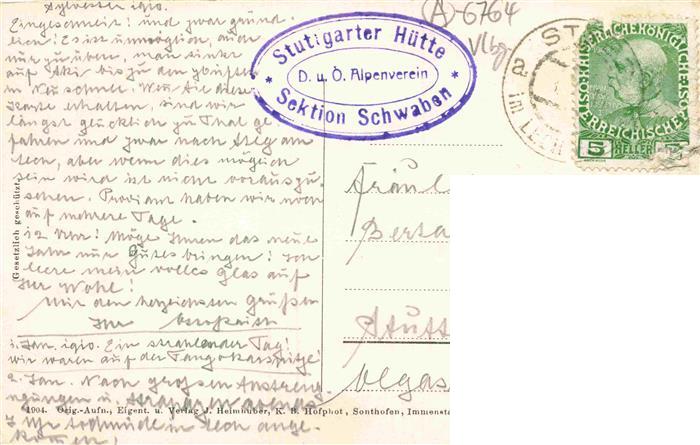 Sylvester 1910.
Eingeschneit! und zwar gründ
lich! Es ist unmöglich, auch
nur zu üben, man sinkt
auf Ski bis zu den
in Neuschnee. Wenn Sie diese
Karte erhalten, sind wir
längst glücklich zu Thal ge
fahren und zwar nach Steg am
Lech, aber wenn dies möglich
sein wird ist nicht vorauszu
sehen. Proviant haben wir noch
auf mehrere Tage.
12 Uhr! Möge Ihnen das neue
Jahr nur Gutes bringen! Ich
leere mein volles Glas auf
Ihr Wohl!
Mit den herzlichsten Grüßen
Ihr
1. Jan. 1910. Ein strahlender Tag!
wir waren auf der
2. Jan. Nach großen Anstren
gungen u. Strapazen abends
7 Uhr todmüde in Lech ange
kommen!
Gesetzlich geschützt.
1904. Orig.-Aufn., Eigent. u. Verlag J. Heimhuber, K. B. Hofphot, Sonthofen, Immensta
Stuttgarter Hütte
D. u. Ö. Alpenverein
* Sektion Schwaben *
(A)-6764
Vlbg.
ST
a
IM LECH
KAISERLICHE KÖNIGLICHE
ÖSTERREICHISCHE
5 HELLER
Fräul
Berta
Stutt
Olgas